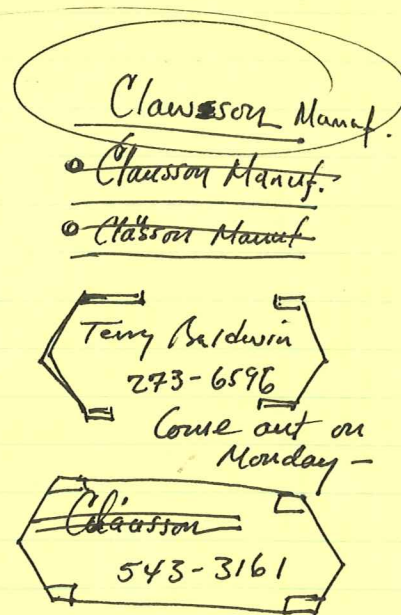 Clawson Manuf.
Clausson Manuf.
Clässon Manuf
Terry Baldwin
273-6596
Come out on
Monday -
543-3161